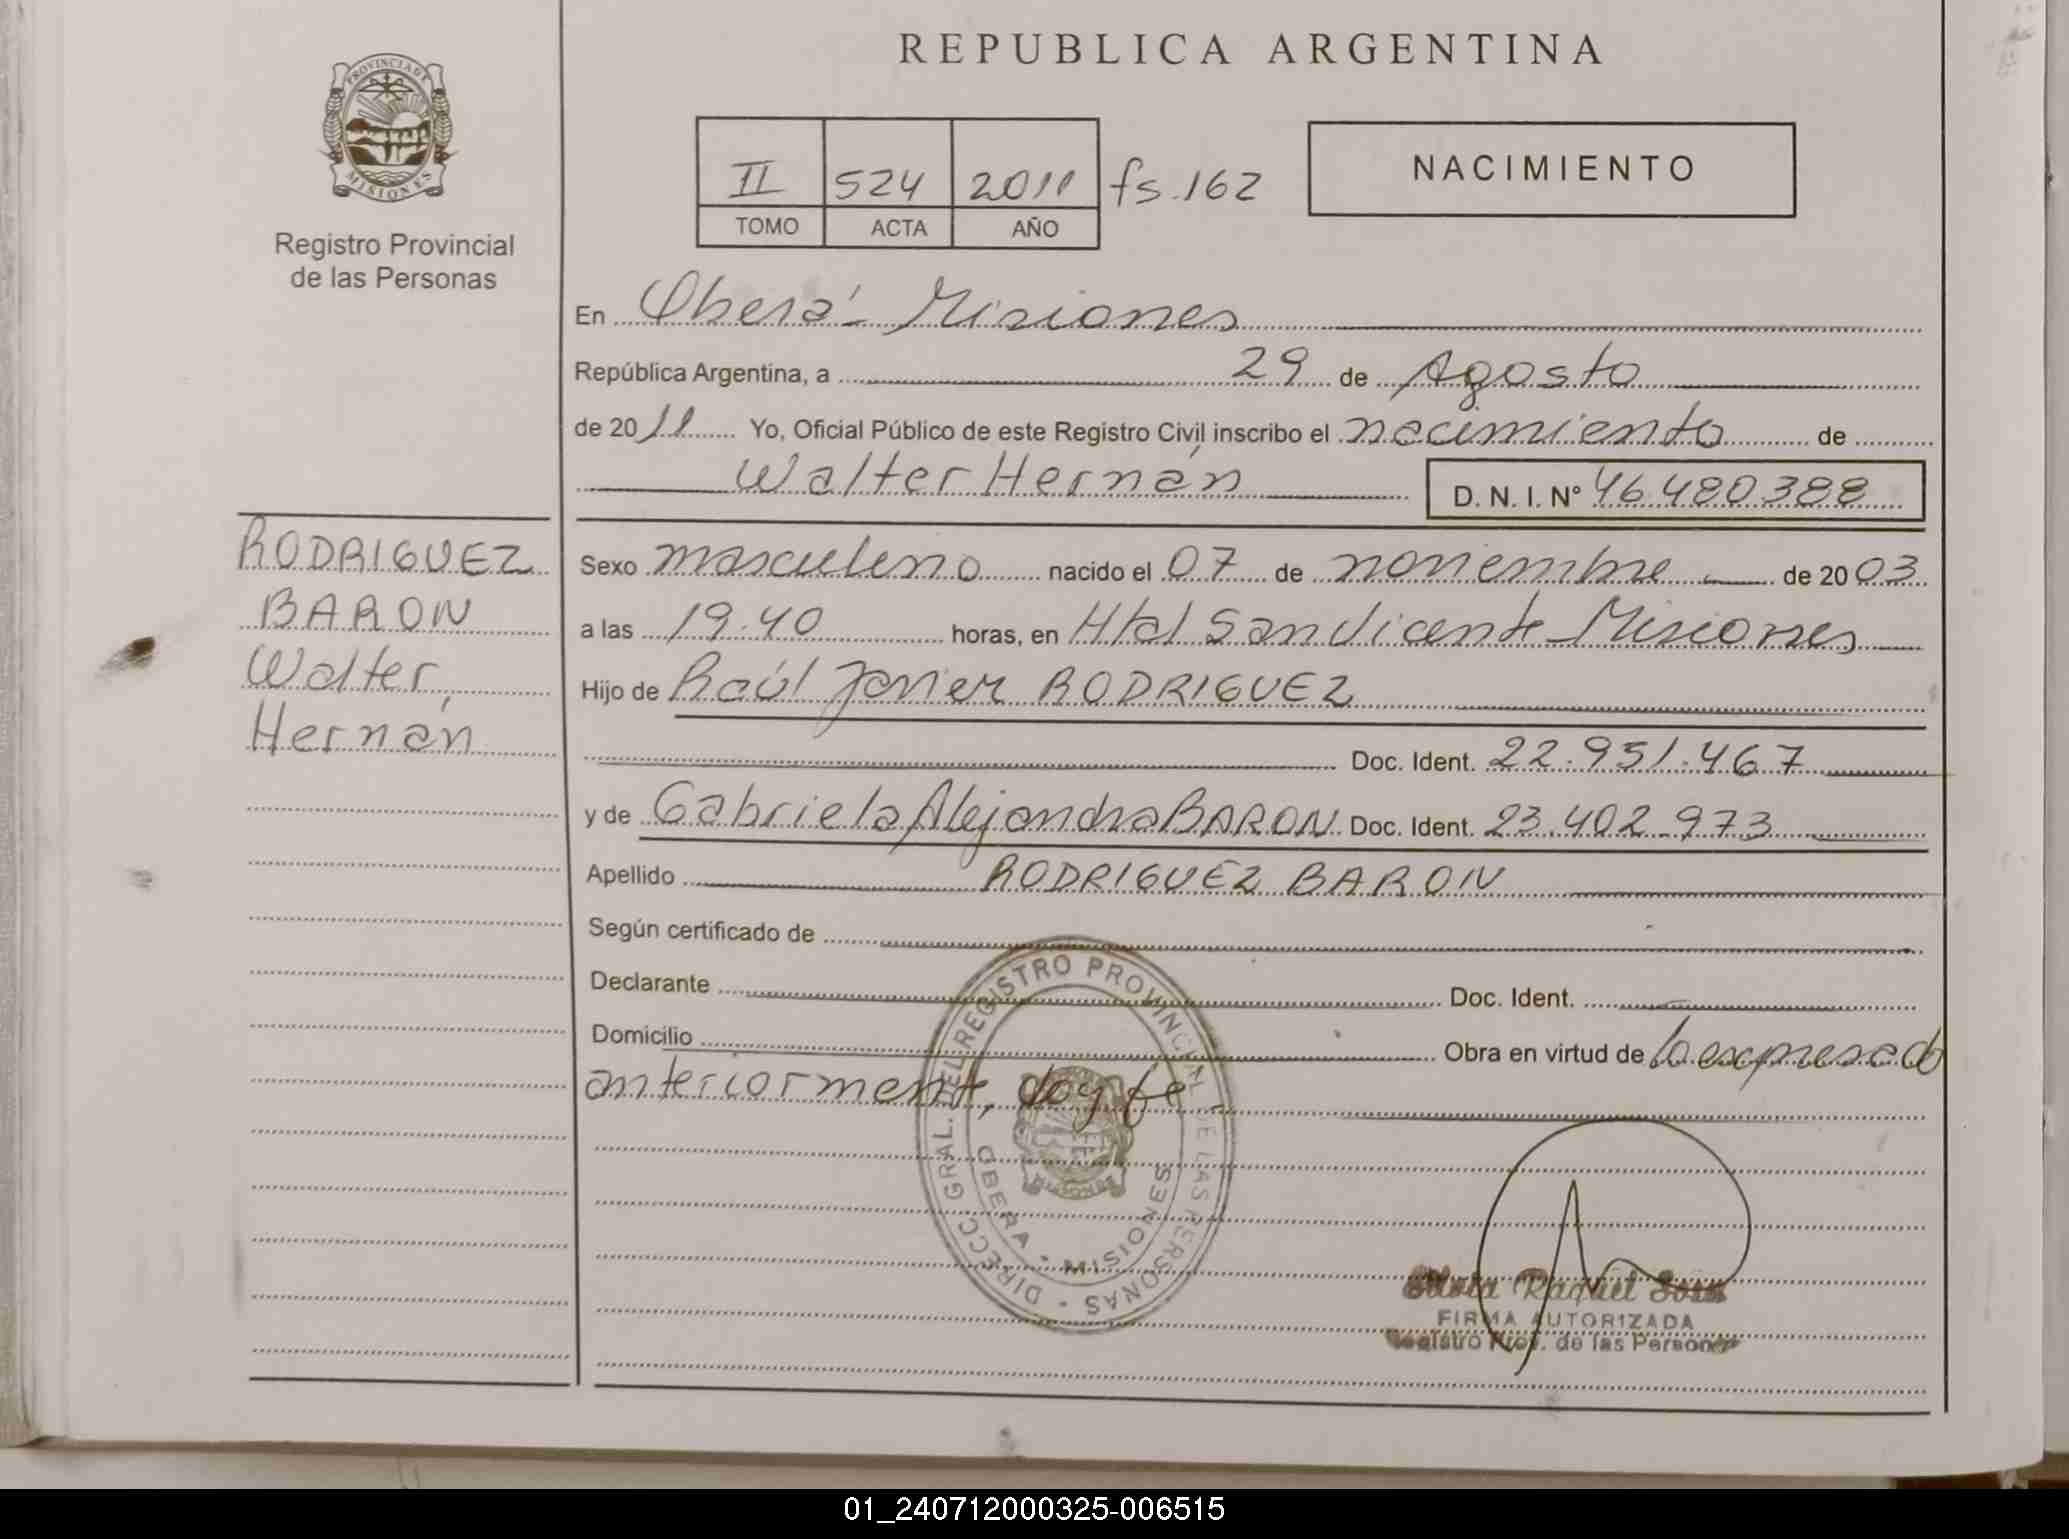 REPUBLICA ARGENTINA
PROVINCIA DE
MISIONES
Registro Provincial
de las Personas
II 524 2011 fs.162
TOMO ACTA AÑO
NACIMIENTO
En Oberá - Misiones
República Argentina, a 29 de Agosto
de 2011 Yo, Oficial Público de este Registro Civil inscribo el nacimiento de
Walter Hernán D. N. I. N° 46.480.388
RODRIGUEZ
BARON
Walter,
Hernán
Sexo masculino nacido el 07 de noviembre de 2003
a las 19.40 horas, en Htal San Vicente - Misiones
Hijo de Raúl Javier RODRIGUEZ
Doc. Ident. 22.951.467
y de Gabriela Alejandra BARON Doc. Ident. 23.402.973
Apellido RODRIGUEZ BARON
Según certificado de
Declarante Doc. Ident.
Domicilio Obra en virtud de lo expresado
anteriorment, doy fe -
DIRECC. GRAL. DEL REGISTRO PROVINCIAL DE LAS PERSONAS
OBERA - MISIONES
Raquel Sosa
FIRMA AUTORIZADA
Registro Prov. de las Personas
01_240712000325-006515